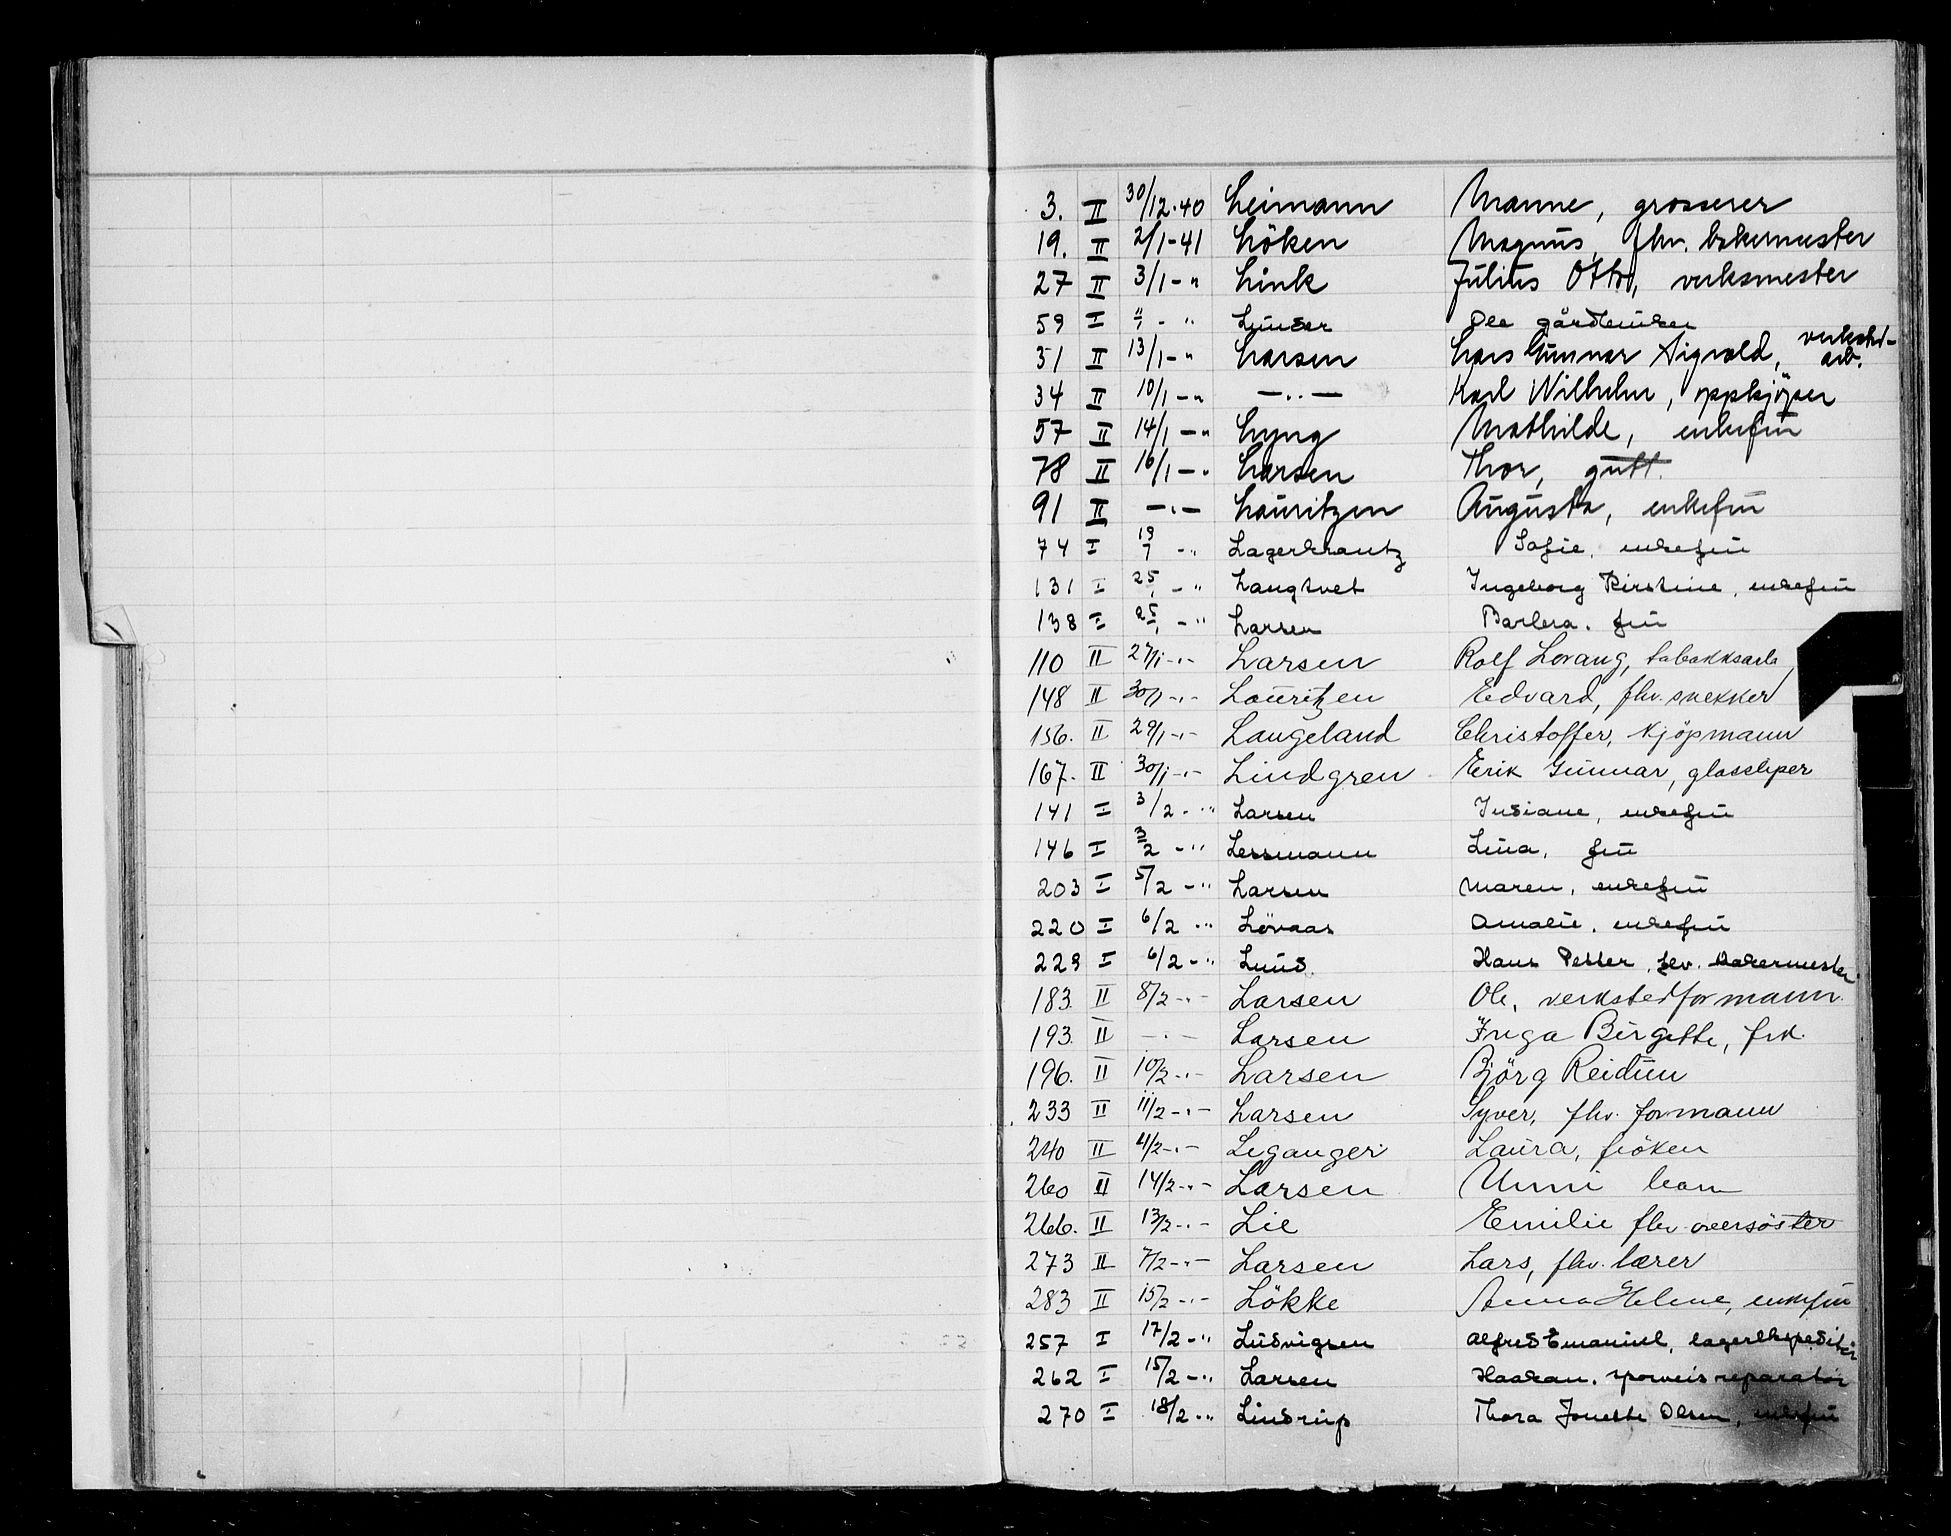 3. II 30/12-40 Leimann Manne, grosserer
19. II 2/1-41 Löken Magnus, fhv. bakermester
27 II 3/1 - " Link Julius Otto, verksmester
59 I - " Lunder Ole gårdbruker
31 II 13/1 - " Larsen Lars Gunnar Sigvald, verksted-arb.
34 II 10/1 - " — " — Karl Wilhelm, oppkjöper
57 II 14/1 - " Lyng Mathilde, enkefru
78 II 16/1 - " Larsen Thor, gutt.
91 II — " — Lauritzen Augusta, enkefru
74 I 19/1 - " Lagerkrantz Sofie, enkefru
131 I 25/1 - " Langtvet Ingeborg Kirstine, enkefru
138 I 25/1 - " Larsen Barbera, fru
110 II 27/1 - " - Larsen Rolf Lorang, tobakksarb
148 II 30/1 - " - Lauritzen Edvard, fhv. snekker
156. II 29/1 - " - Langeland Christoffer, kjöpmann
167. II 30/1 - " - Lindgren Erik Gunnar, glassliper
141 I 3/2 - " Larsen Indiane, enkefru
146 I 3/2 - " Lessmann Lina, fru
203 I 5/2 - " Larsen Maren, enkefru
220 I 6/2 - " Lövaas Amalie, enkefru
229 I 6/2 - " Lund Hans Petter, fhv. bakermester
183 II 8/2 - " - Larsen Ole, verkstedformann
193 II - " - Larsen Inga Birgitte, frk.
196. II 10/2 - " - Larsen Björg Reidun
233 II 11/2 - " - Larsen Syver, fhv. formann
240 II 4/2 - " - Leganger Laura, fröken
260 II 14/2 - " - Larsen Unni barn
266. II 13/2 - " - Lie Emilie fhv oversöster
273 II 7/2 - " - Larsen Lars, fhv. lærer
283 II 15/2 - " - Lökke Anna Helene, enkefru
257 I 17/2 - " Ludvigsen Alfred Emanuel, lagerekspeditör
262 I 15/2 - " Larsen Haakan, sporveisreparatör
270 I 18/2 - " Lindrup Thora Jonette Olsen, enkefru